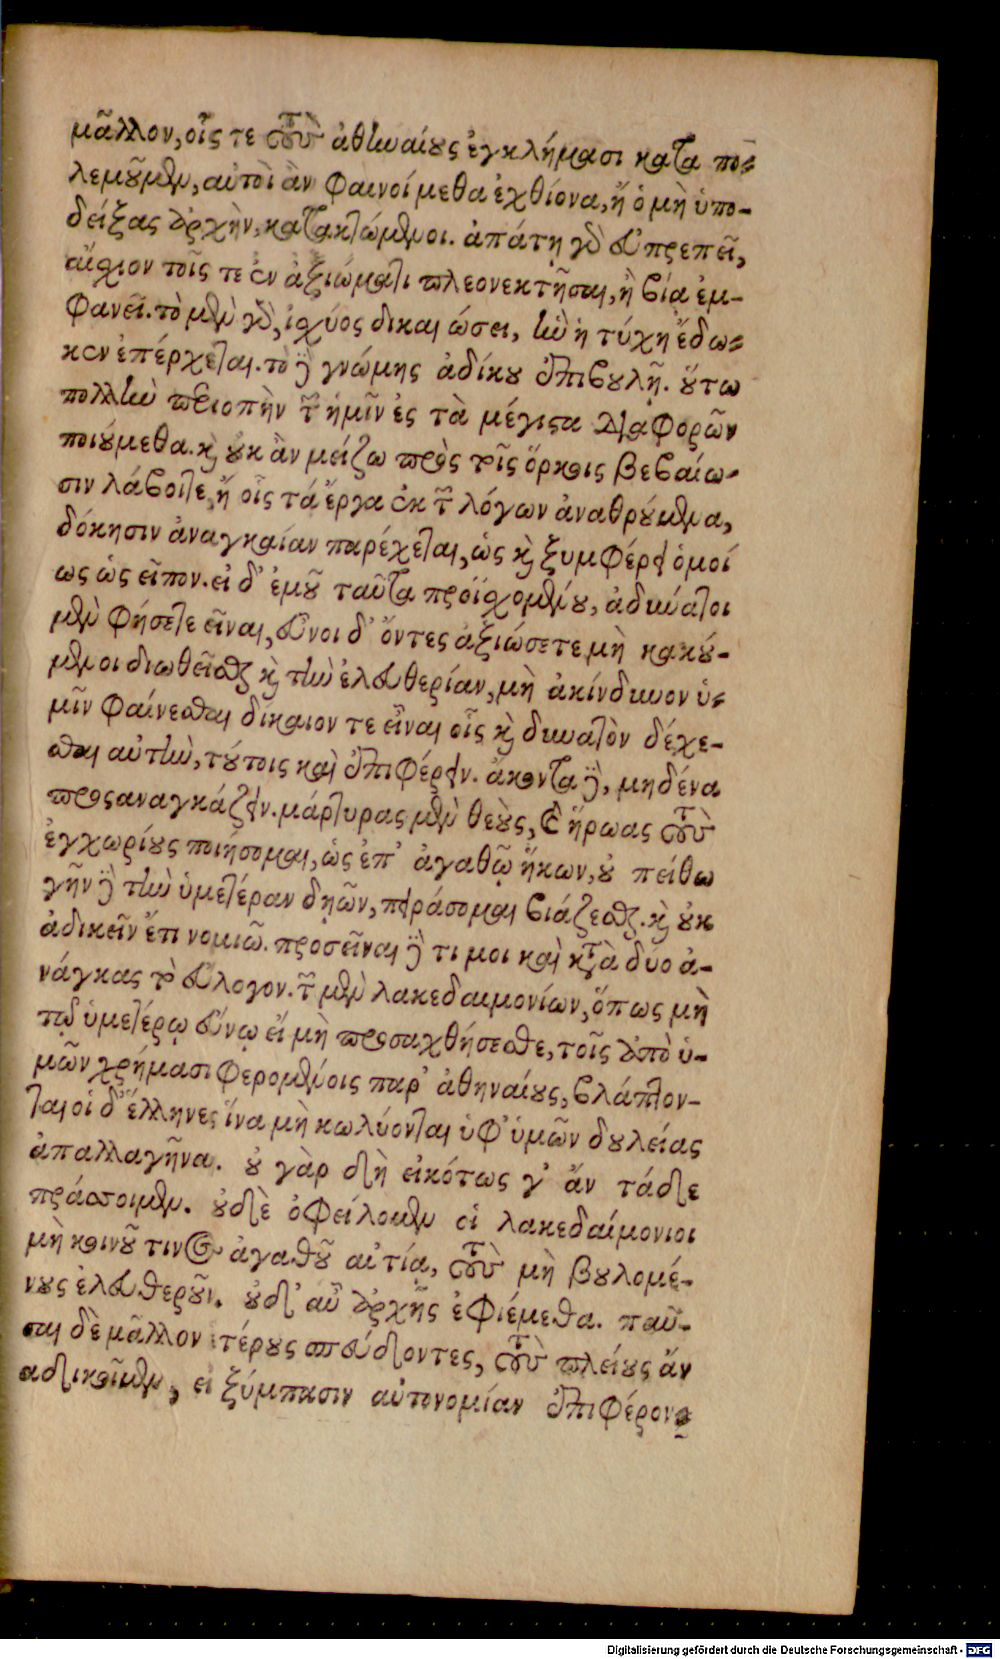 μᾶλλον, οἷς τε τοὺς ἀθηναίους ἐγκλήμασι καταπο-
λεμοῦμεν, αὐτοὶ ἂν φαινοίμεθα ἐχθίονα, ἢ ὁ μὴ ὑπο-
δείξας ἀρχὴν, κατακτώμενοι. ἀπάτῃ γὰρ εὐπρεπεῖ,
αἴσχιον τοῖς τε ἐν ἀξιώματι πλεονεκτῆσαι, ἢ βίᾳ ἐμ-
φανεῖ. τὸ μὲν γὰρ, ἰσχύος δικαιώσει, ἣν ἡ τύχη ἔδω-
κεν ἐπέρχεται. τὸ δὲ γνώμης ἀδίκου ἐπιβουλῇ. οὕτω
πολλὴν περιοπὴν τῶν ἡμῖν ἐς τὰ μέγιστα διαφορῶν
ποιούμεθα. καὶ οὐκ ἂν μείζω πρὸς τοῖς ὅρκοις βεβαίω-
σιν λάβοιτε, ἢ οἷς τά ἔργα ἐκ τῶν λόγων ἀναθρούμενα,
δόκησιν ἀναγκαίαν παρέχεται, ὡς καὶ ξυμφέρει ὁμοί
ως ὡς εἶπον. εἰ δ' ἐμοῦ ταῦτα προϊσχομένου, ἀδύνατοι
μὲν φήσετε εἶναι, εὖνοι δ' ὄντες ἀξιώσετε μὴ κακού-
μενοι διωθεῖσθαι καὶ τὴν ἐλευθερίαν, μὴ ἀκίνδυνον ὑ-
μῖν φαίνεσθαι δίκαιον τε εἶναι οἷς καὶ δυνατὸν δέχε-
σθαι αὐτὴν, τούτοις καὶ ἐπιφέρειν. ἄκοντα δὲ, μηδένα
προσαναγκάζειν. μάρτυρας μὲν θεοὺς, καὶ ἥρωας τοὺς
ἐγχωρίους ποιήσομαι, ὡς ἐπ' ἀγαθῷ ἥκων, οὐ πείθω
γῆν δὲ τὴν ὑμετέραν δῃῶν, πειράσομαι βιάζεσθαι. καὶ οὐκ
ἀδικεῖν ἔτι νομιῶ. προσεῖναι δὲ τι μοι καὶ κατὰ δύο ἀ-
νάγκας τὸ εὔλογον. τῶν μὲν λακεδαιμονίων, ὅπως μὴ
τῷ ὑμετέρῳ εὔνῳ εἰ μὴ προσαχθήσεσθε, τοῖς ἀπὸ ὑ-
μῶν χρήμασι φερομένοις παρ' ἀθηναίους, βλάπτον-
ται οἱ δ' ἕλληνες ἵνα μὴ κωλύονται ὑφ' ὑμῶν δουλείας
ἀπαλλαγῆναι. οὐ γὰρ δὴ εἰκότως γ' ἂν τάδε
πράσσοιμεν. οὐδὲ ὀφείλομεν οἱ λακεδαίμονιοι
μὴ κοινοῦ τινος ἀγαθοῦ αἰτίᾳ, τοὺς μὴ βουλομέ-
νους ἐλευθεροῦν. οὐδ' αὖ ἀρχῆς ἐφιέμεθα. παῦ-
σαι δὲ μᾶλλον ἑτέρους σπεύδοντες, τοὺς πλείους ἂν
αδικοῖμεν, εἰ ξύμπασιν αὐτονομίαν ἐπιφέρον-
Digitalisierung gefördert durch die Deutsche Forschungsgemeinschaft - DFG